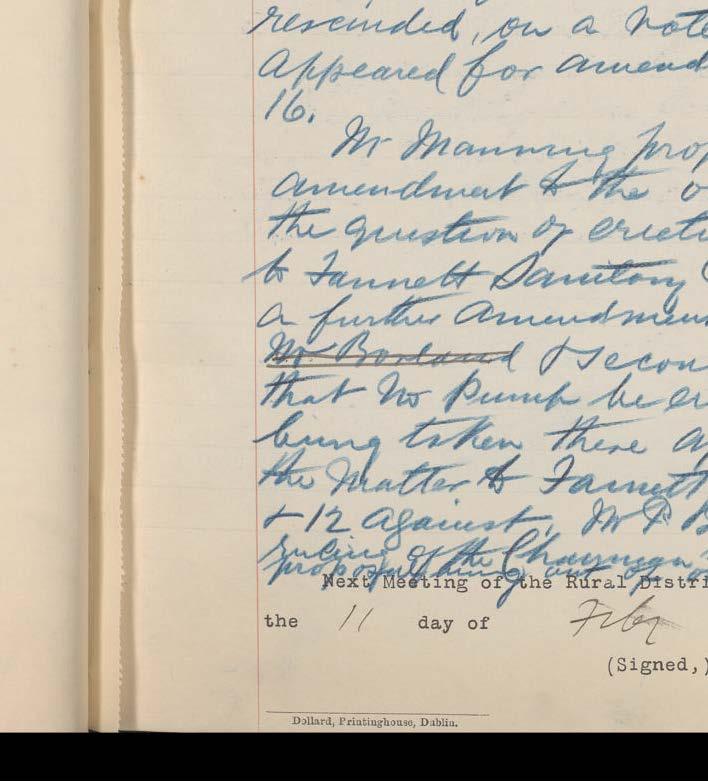 rescinded, on a vote
appeared for amend
16.
Mr Manning prop
amendment to the o
the question of erecti
to Fannett Sanitary
a further amendmen
Mr Borland & secon
that no Pump be er
being taken there a
the Matter to Fannett
& 12 against, Mr P B
ruling of the Chairman
Next Meeting of the Rural Distri
the 11 day of Feby
(Signed,)
Dollard, Printinghouse, Dublin.